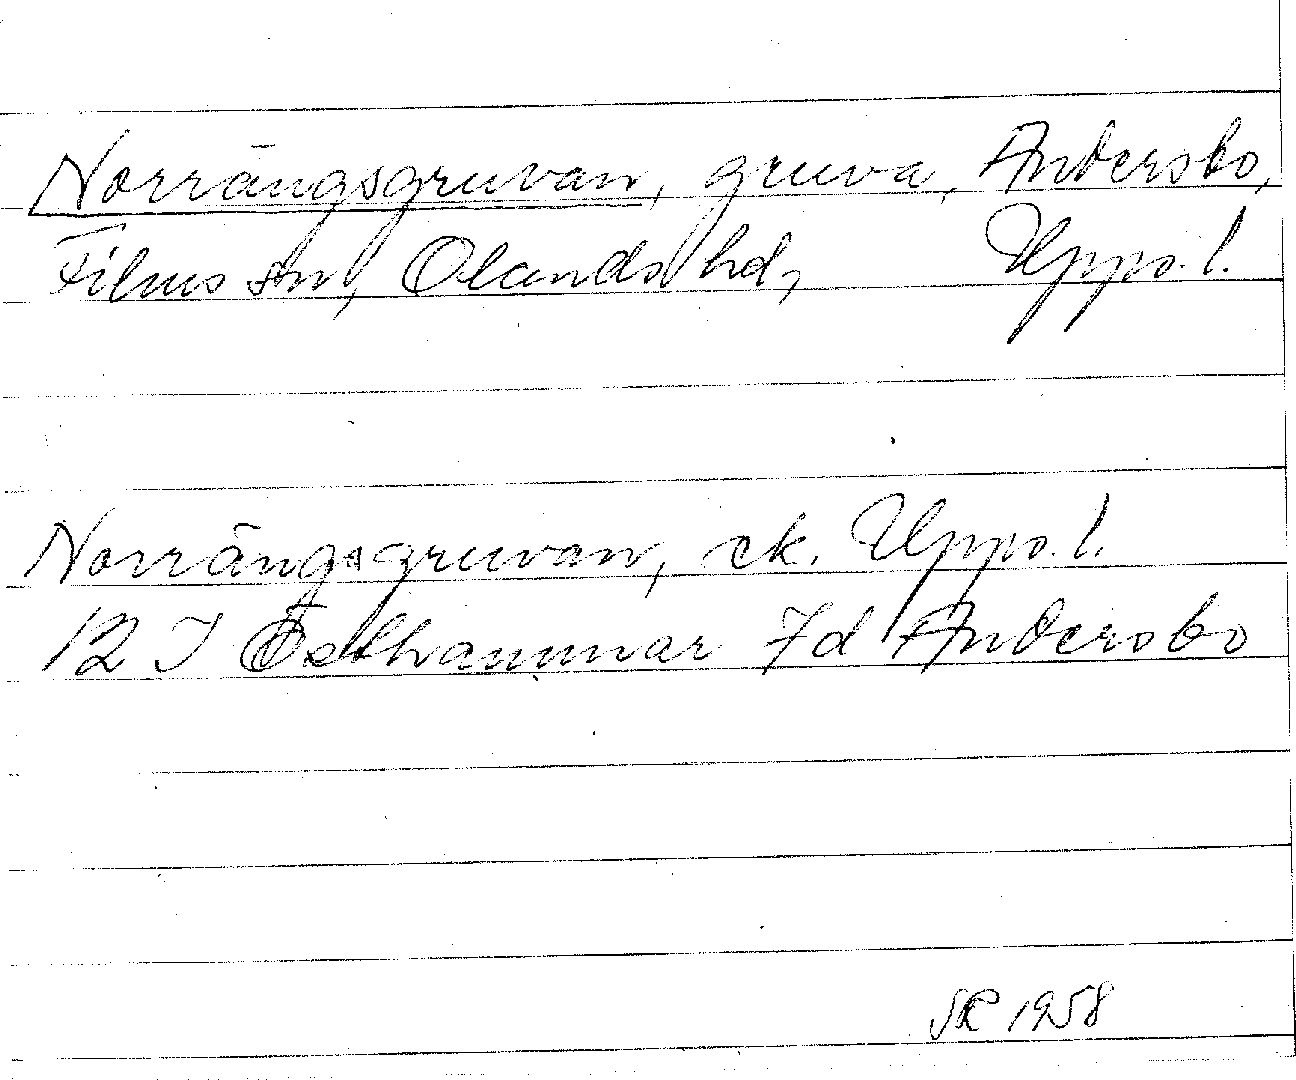 Norrängsgruvan, gruva, Andersbo,
Films sn, Olands hd, Upps. l.
Norrängsgruvan, ek. Upps. l.
12 I Östhammar 7d Andersbo
SR 1958